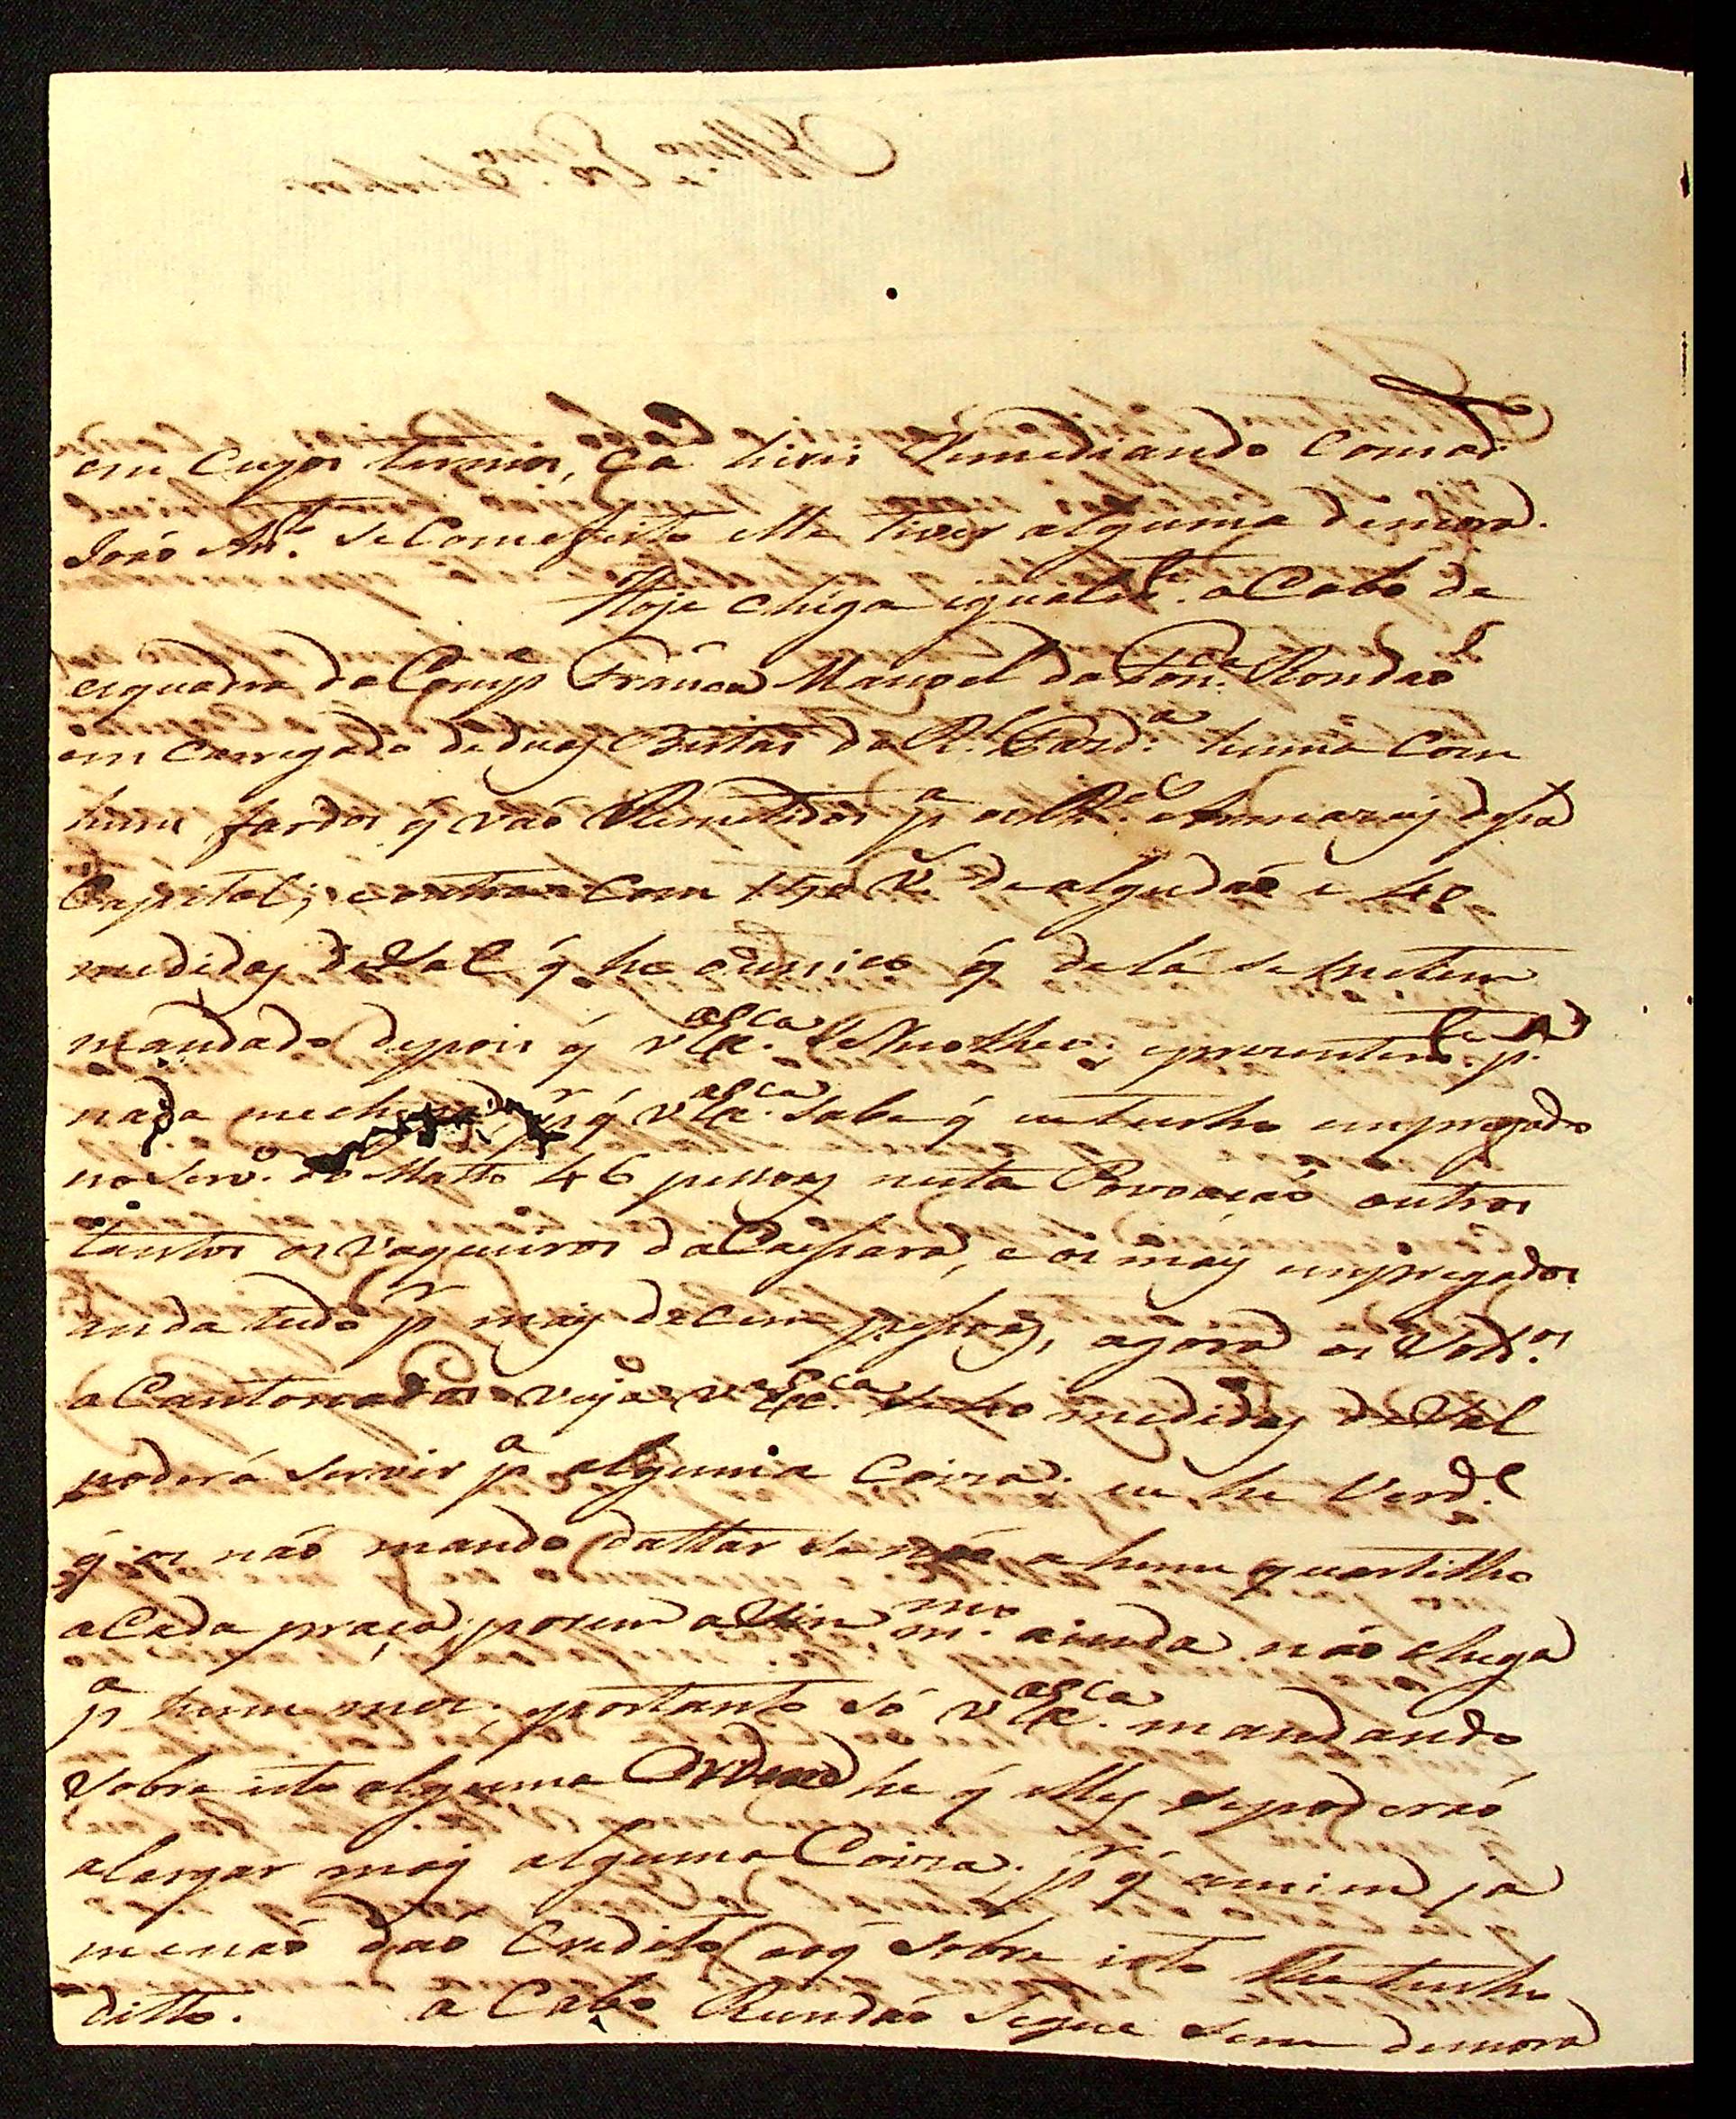 em Cujos termos, cá hirei Remediando Com o d.
João An.to se Com efeito elle tiver alguma demora.
Hoje chega igualm.e o Cabo de
esquadra da Comp.e Franca Manoel da Fon.ca Rondaõ
em Carregado de duas Bestas da R.l Fazd.a huma Com
hum fardos q̃ vaõ Remetidos p.a os R.es Armazẽs desta
Capital; e outra Com 150 V.s de algudaõ e 40
medidas de Sal q̃ he o unico q̃ de lá se me tem
mandado depois q̃ V Ex.ca se Recolheo; e prezentem.e p.a
nada me chega p.r q̃ V Ex.ca sabe q̃ eu tenho empregado
no Serv.o do Matto 46 pessoas nesta Povoaçaõ outros
tantos os Vaqueiros da Caissara, e os mais empregados
anda tudo p.r mais de cem pessoas, agora os Sold.os
aCantonados veja V Ex.ca se 40 medidas de Sal
poderá servir p.a alguma Coiza; eu he Verd.e
q̃ os naõ mando dattar se naõ a hum quartilho
a Cada praça; porem a Sim m.mo ainda naõ chega
p.a hum mez; portanto só V Ex.ca mandando
Sobre isto alguma Ordem he q̃ elles se poderaõ
alargar mais alguma Coiza; p.r q̃ a mim já
me naõ daõ Credito ao q̃ Sobre isto lhe tenho
ditto. o Cabo Rundaõ Segue Sem demora